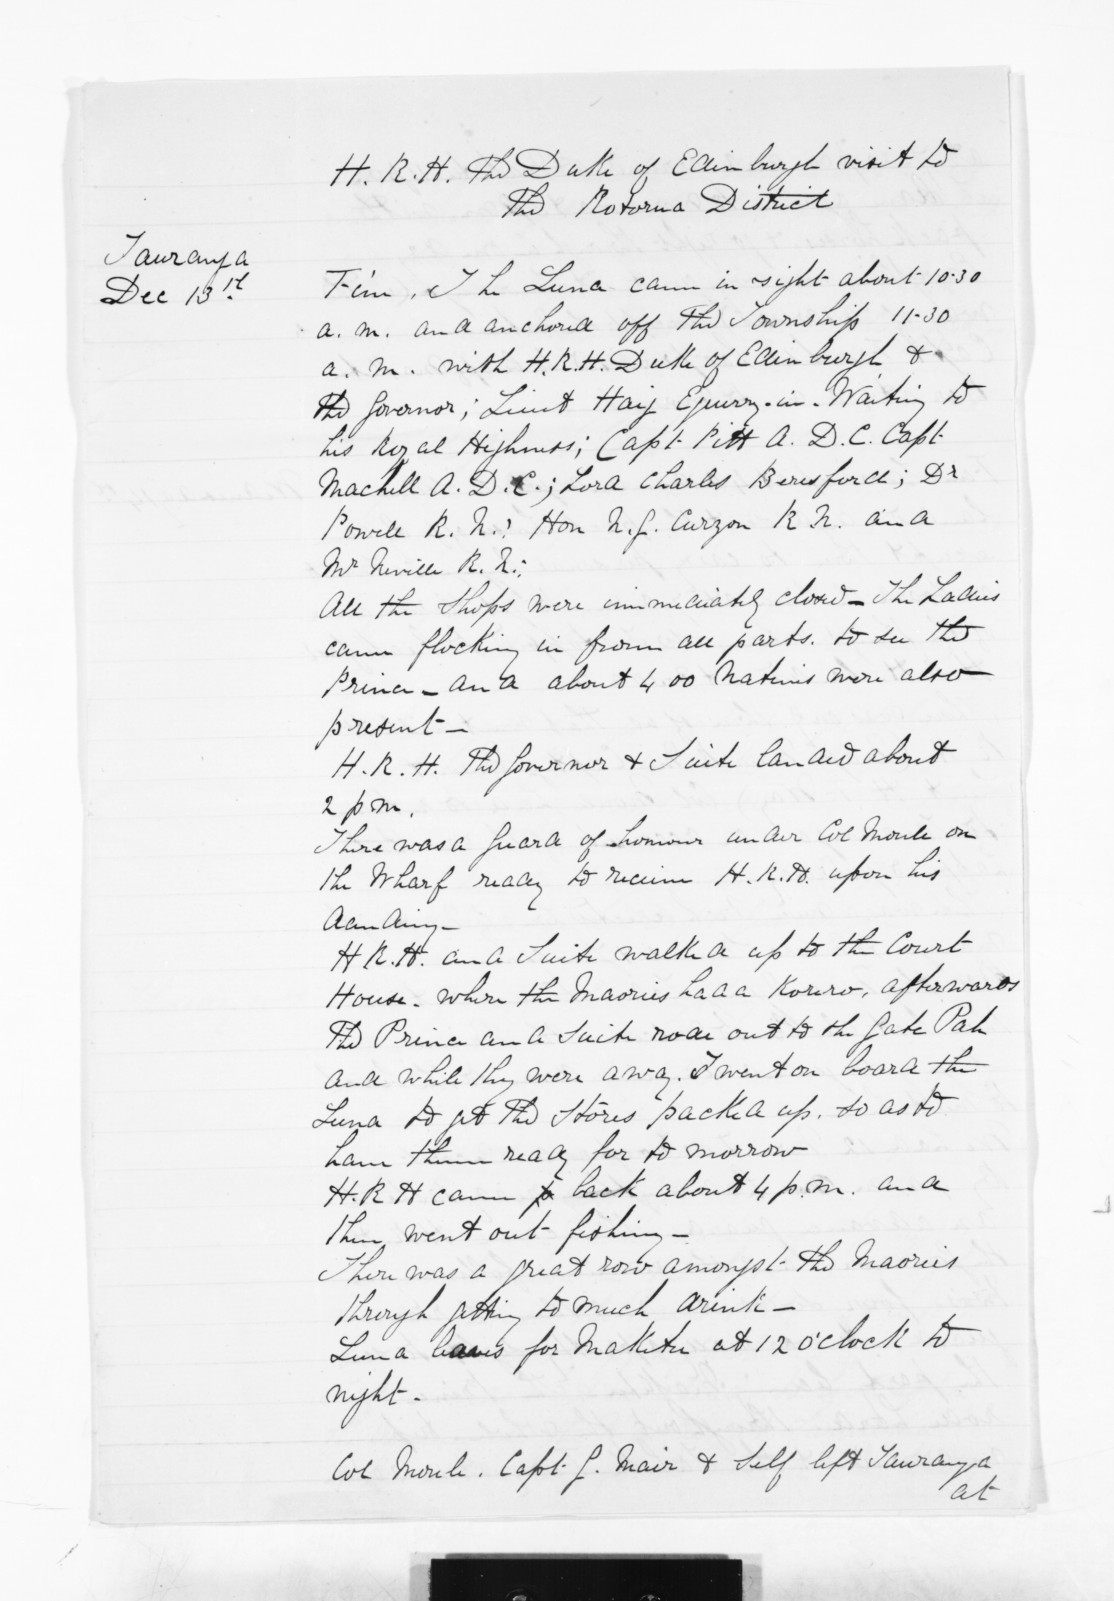 H. R. H. The Duke of Edinburgh visit to
The Rotorua District
Tauranga
Dec 13th
Fine. The Luna came in sight about 10.30
a. m. and anchored off the Township 11.30
a. m. with H.R.H. Duke of Edinburgh &
the Governor; Lieut Haig Equerry-in-Waiting to
his Royal Highness; Capt Pitt A. D. C. Capt
Machell A. D. C.; Lord Charles Beresford; Dr
Powell R. N.; Hon N. G. Curzon R N. and
Mr Neville R. N.;
All the Shops were immediately closed – The Ladies
came flocking in from all parts. to see the
Prince – and about 400 Natives were also
present –
H. R. H. The Governor & Suite landed about
2 p m.
There was a guard of honour under Col Moule on
the Wharf ready to receive H. R. H. upon his
landing –
H R. H. and Suite walked up to the Court
House. where the Maories had a Korero, afterwards
The Prince and Suite rode out to the Gate Pah
and while they were away. I went on board the
Luna to get the Stores packed up. so as to
have them ready for to morrow
H. R H came back about 4 p. m. and
then went out fishing –
There was a great row amongst the Maories
through getting to much drink –
Luna leaves for Maketu at 12 o'clock to
night.
Col Moule. Capt G. Mair & Self left Tauranga
at